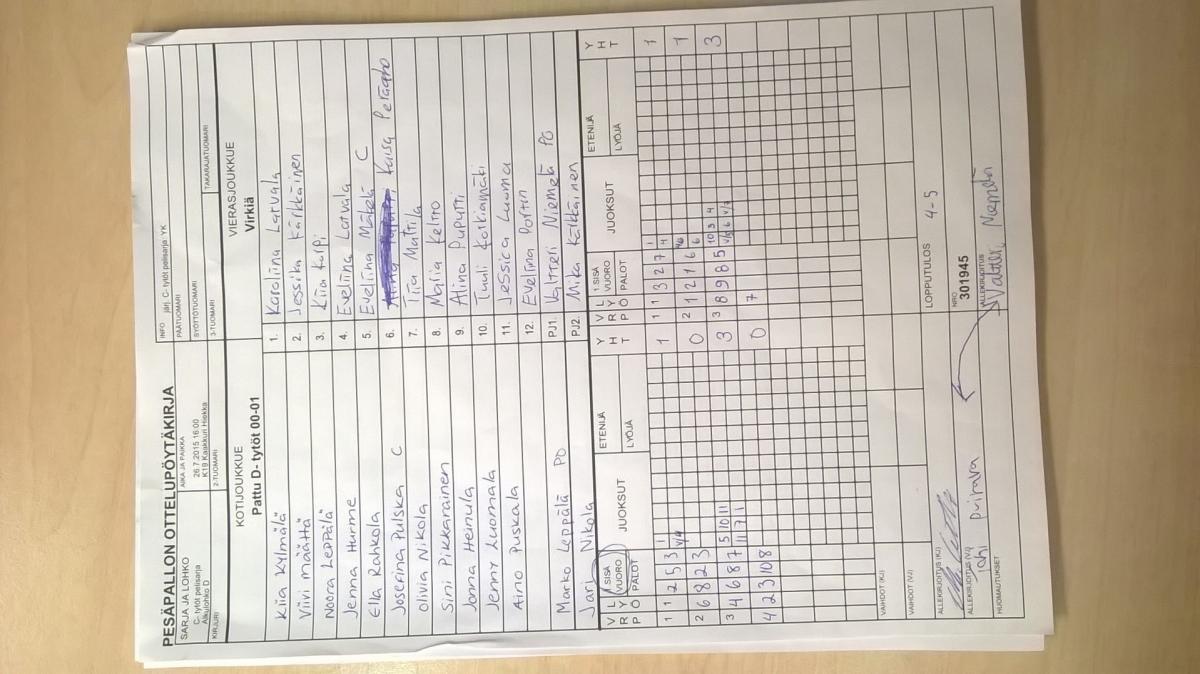 PESÄPALLON OTTELUPÖYTÄKIRJA
SARJA JA LOHKO
C- tytöt pelisarja
Alkulohko D
AIKA JA PAIKKA
26.7.2015 16:00
K19 Kaakkuri Hiekka
INFO järj. C- tytöt pelisarja YK
PÄÄTUOMARI
SYÖTTÖTUOMARI
KIRJURI
2-TUOMARI
3-TUOMARI
TAKARAJATUOMARI
KOTIJOUKKUE
Pattu D- tytöt 00-01
VIERASJOUKKUE
Virkiä
Kiia Kylmälä
1. Karoliina Latvala
Viivi Määttä
2. Jessika Kärkkäinen
Noora Leppälä
3. Kiia Karpi
Jenna Hurme
4. Eveliina Latvala
Ella Rahkola
5. Eveliina Mäkelä C
Josefina Pulska C
6. Kaisa Peräaho
Olivia Nikola
7. Tiia Mattila
Sini Pikkarainen
8. Maija Keltto
Jonna Heinula
9. Alina Puputti
Jenny Luomala
10. Tuuli Koskiamäki
Aino Puskala
11. Jessica Luoma
12. Evelina Portin
Marko Leppälä PO
PJ1. Valtteri Niemelä PO
Jari Nikola
PJ2. Mika Kärkkäinen
V R P L Y Ö 1.SISÄ VUORO PALOT JUOKSUT ETENIJÄ LYÖJÄ Y H T
V R P L Y Ö 1.SISÄ VUORO PALOT JUOKSUT ETENIJÄ LYÖJÄ Y H T
1 1 2 5 3 1 1
1 1 3 2 7 1
2 6 8 2 3 0
2 1 2 1 6 1
3 4 6 8 7 5 10 11 3
3 8 9 8 5 10 3 4 3
11 7 1
4 2 3 10 8 0
7
VAIHDOT (KJ)
VAIHDOT (VJ)
LOPPUTULOS
4-5
ALLEKIRJOITUS (KJ)
NRO
301945
ALLEKIRJOITUS (VJ)
ALLEKIRJOITUS
Valtteri Niemelä
HUOMAUTUKSET